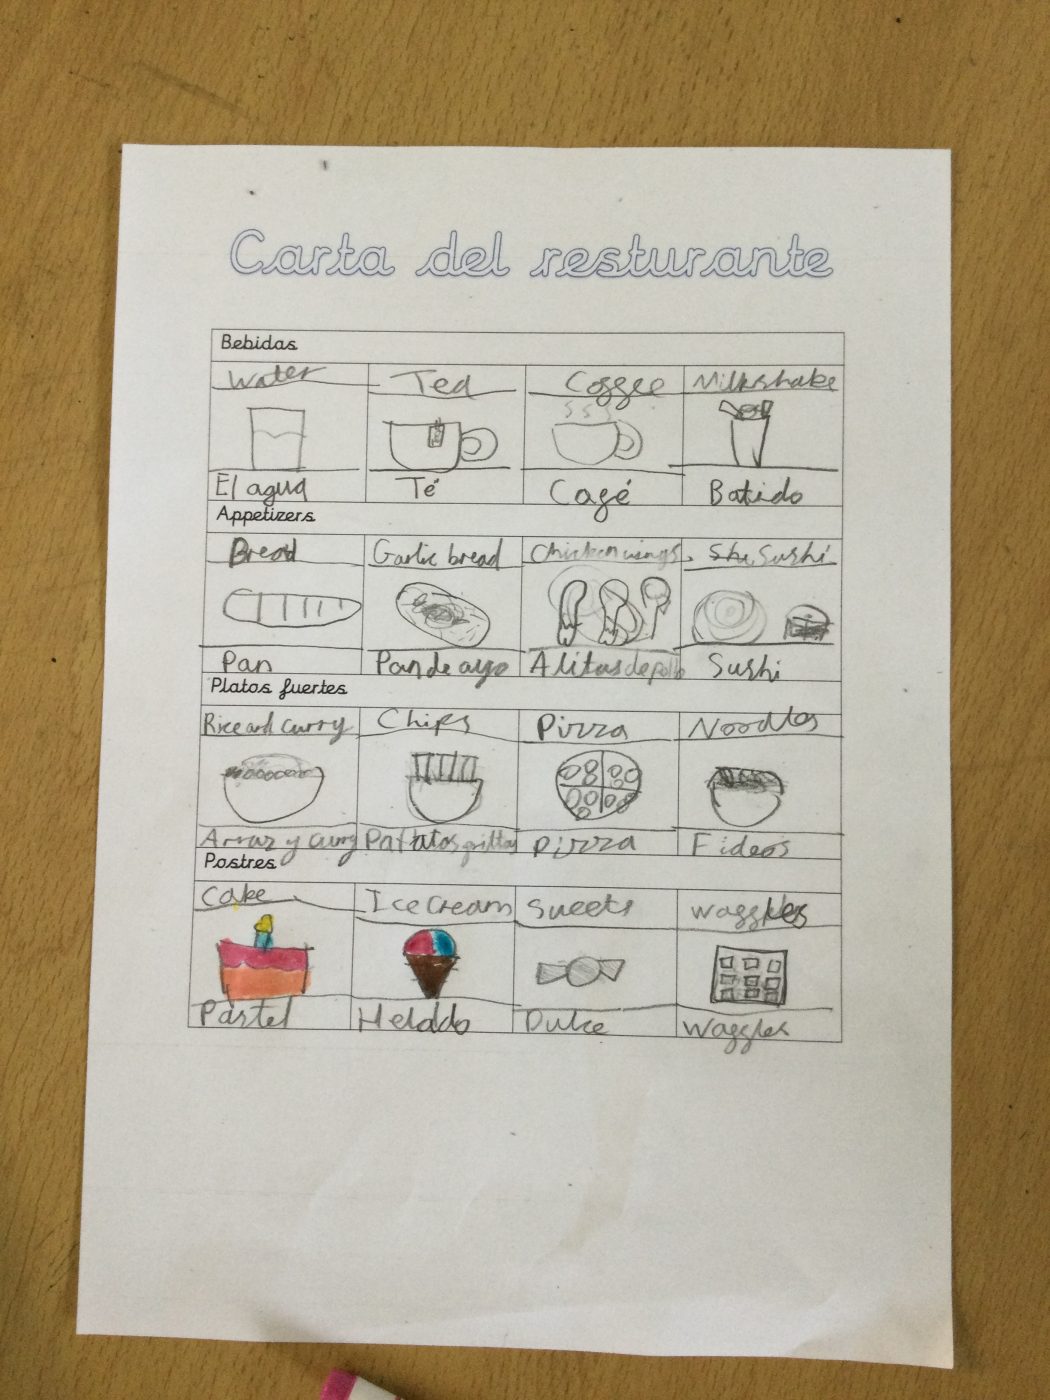 Carta del resturante
Bebidas
Water Tea Coffee Milkshake
El agua Té Café Batido
Appetizers
Bread Garlic bread Chicken wings Sushi
Pan Pan de ayo Alitas de pollo Sushi
Platos fuertes
Rice and curry Chips Pizza Noodles
Arroz y curry Patatas fritas Pizza Fideos
Postres
Cake Ice Cream Sweets Waffles
Pastel Helado Dulce Waffles